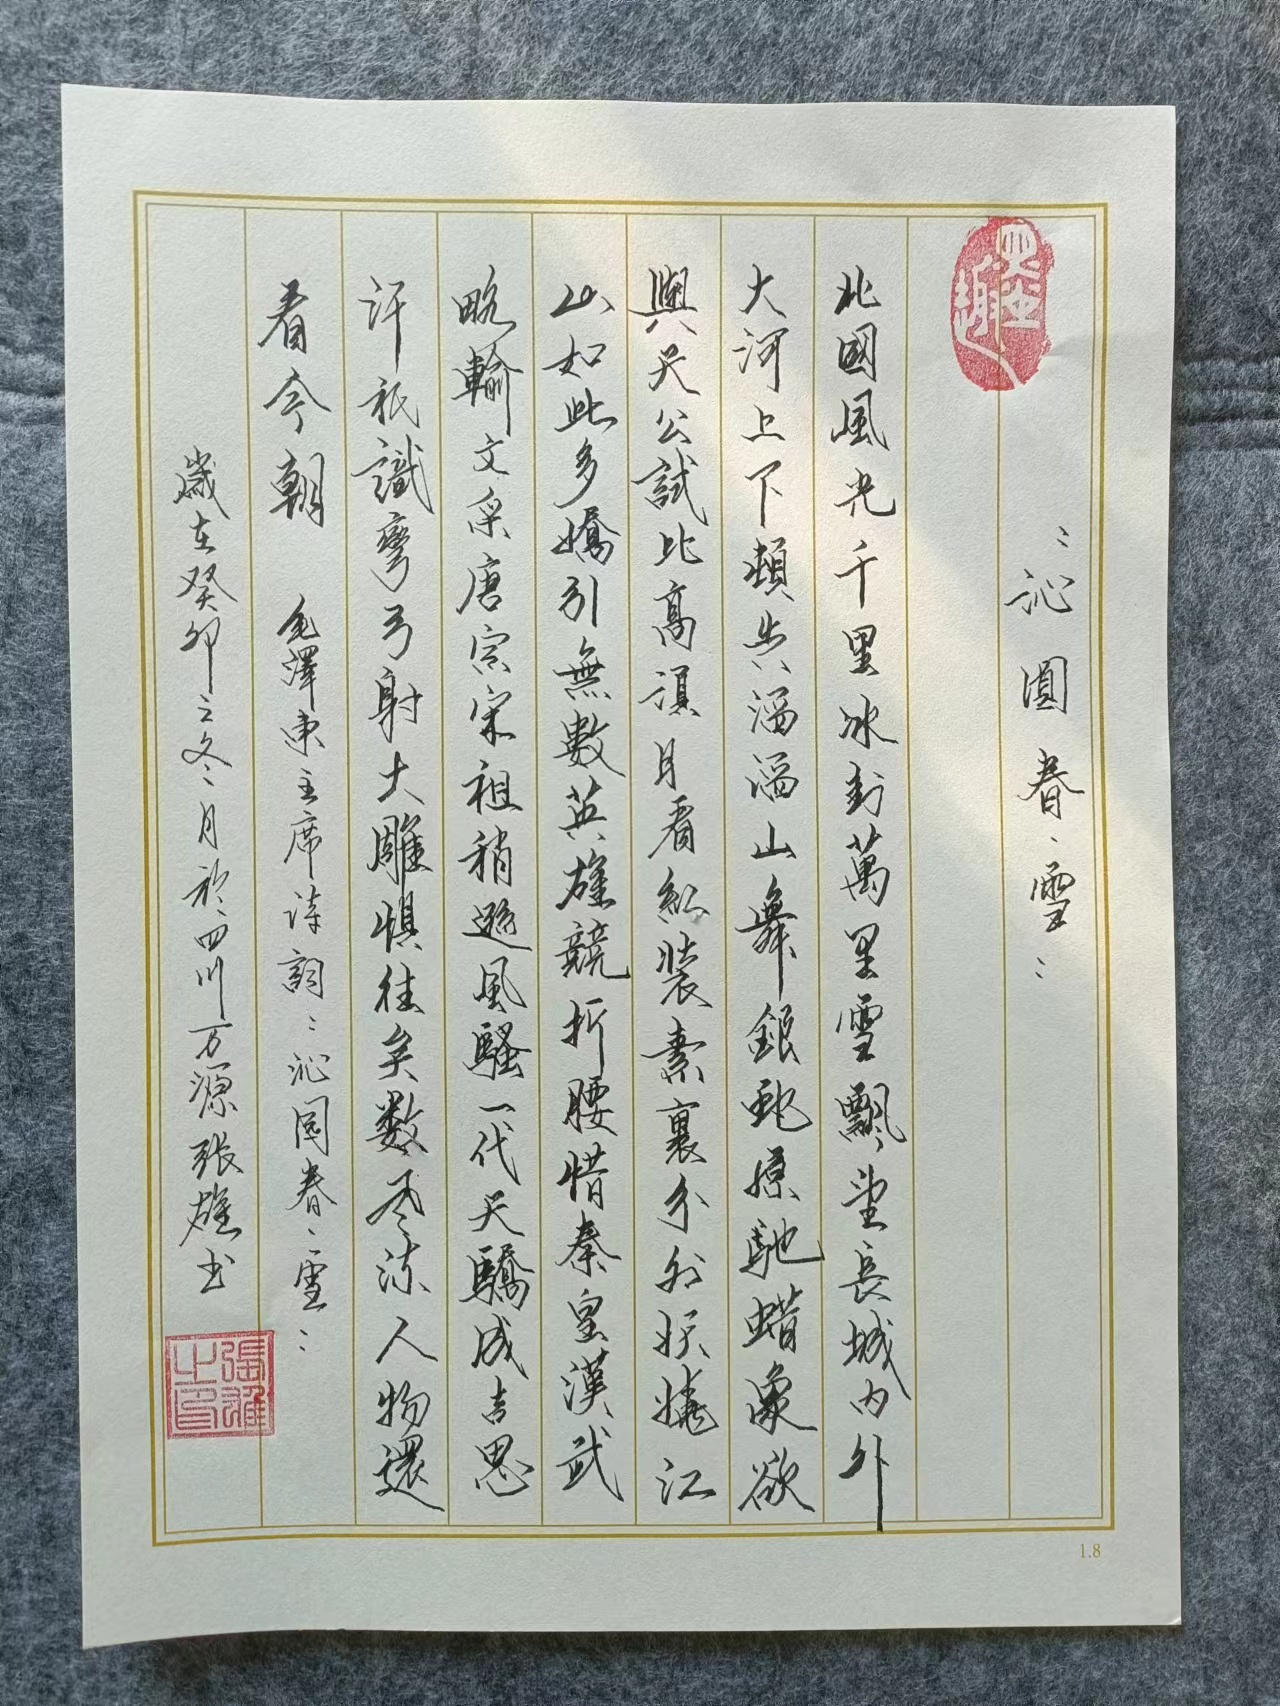 墨趣
：沁園春、雪：
北國風光千里冰封萬里雪飄望長城內外
大河上下頓失滔滔山舞銀蛇原馳蜡象欲
與天公試比高須日看紅裝素裹分外妖嬈江
山如此多嬌引無數英雄競折腰惜秦皇漢武
略輸文采唐宗宋祖稍遜風騷一代天驕成吉思
汗祇識彎弓射大雕俱往矣数風流人物還
看今朝 毛澤東主席詩詞：沁園春、雪：
歲在癸卯之冬月於四川万源張雄书
張雄之印
1.8